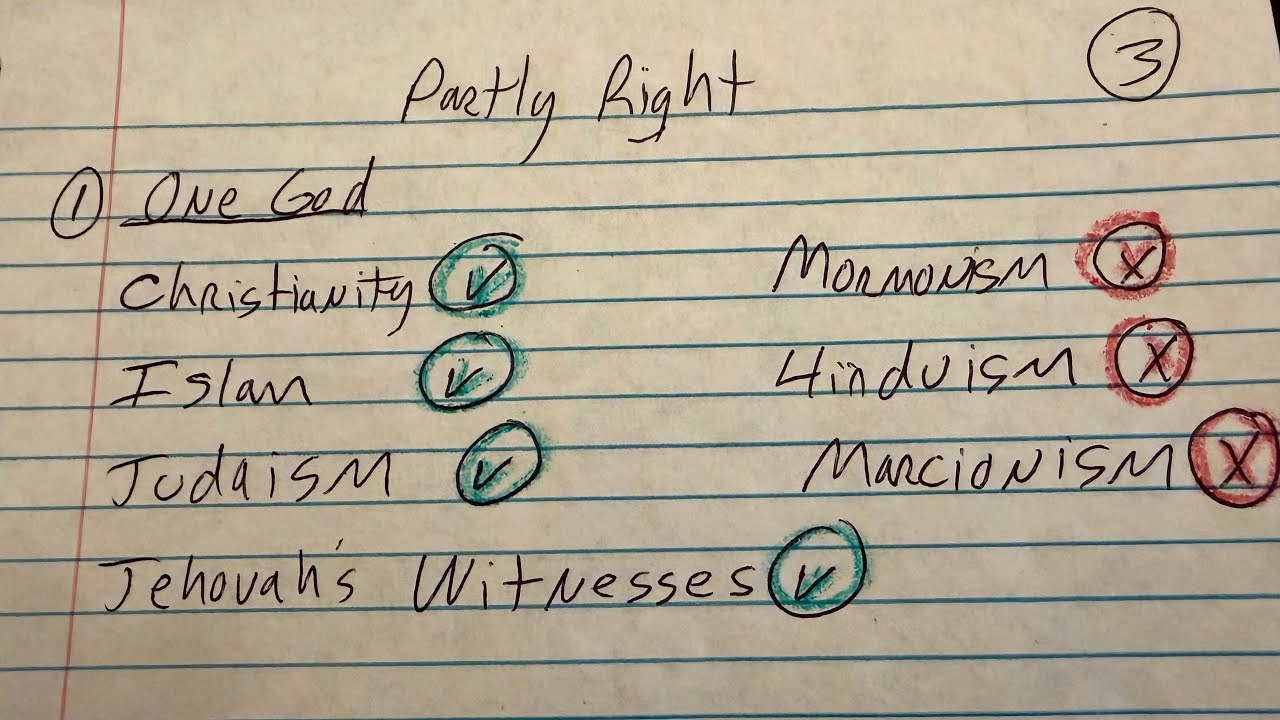 3
Partly Right
1 One God
Christianity ✓ Mormonism X
Islam ✓ Hinduism X
Judaism ✓ Marcionism X
Jehovah's Witnesses ✓